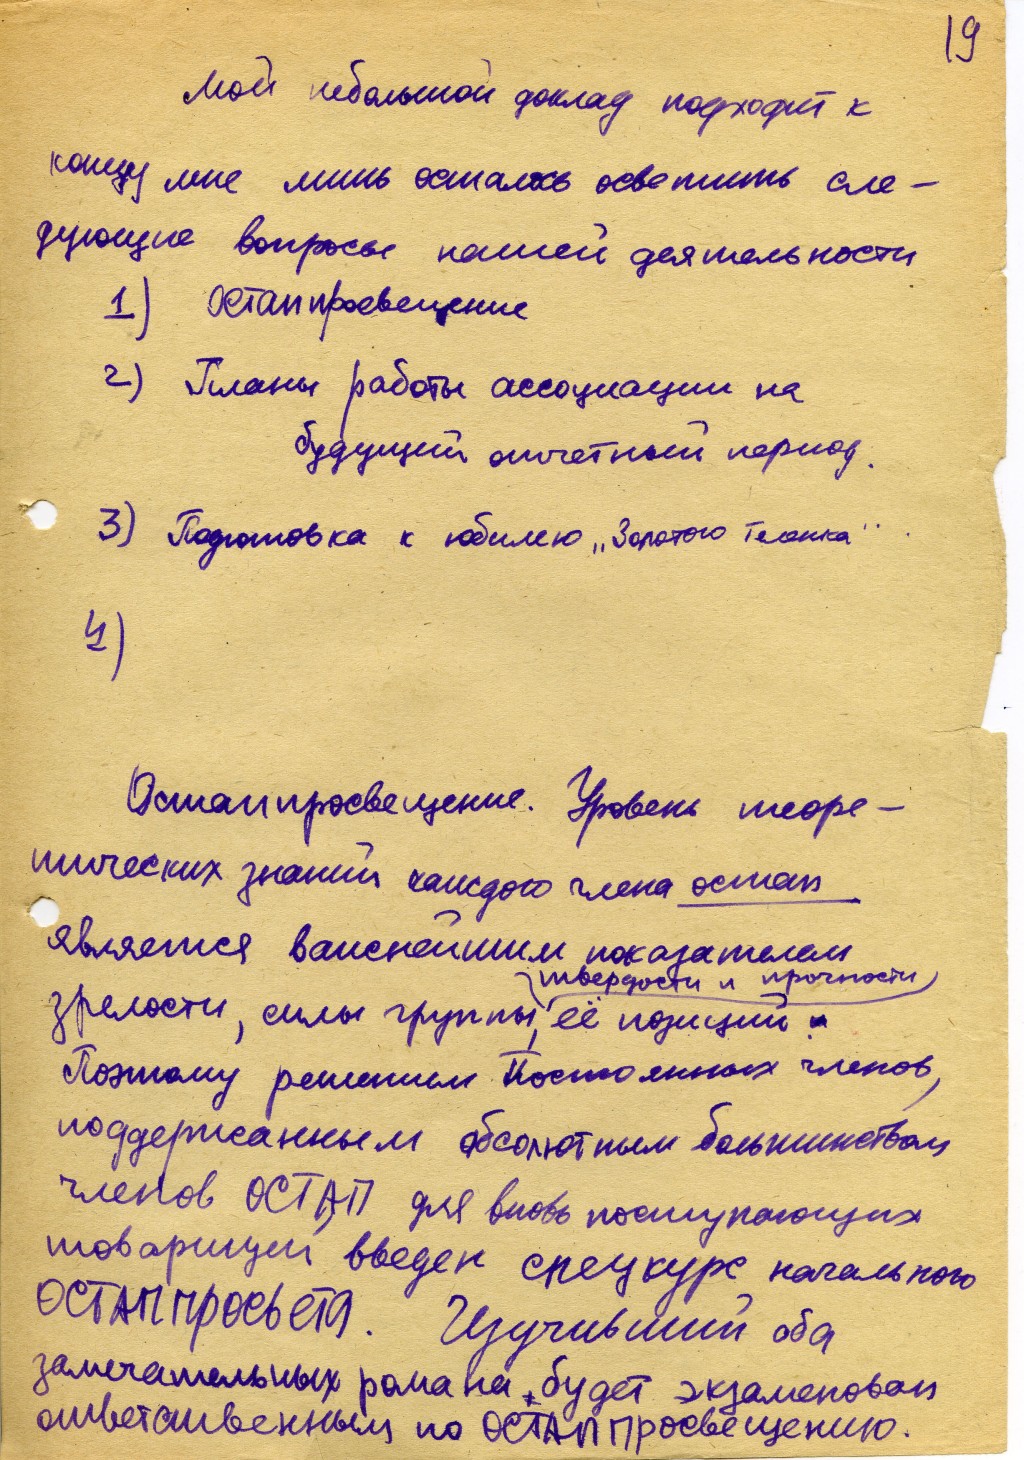 19
Мой небольшой доклад подходит к
концу мне лишь осталось осветить сле-
дующие вопросы нашей деятельности
1) Остаппросвещение
2) Планы работы ассоциации на
будущий отчетный период.
3) Подготовка к юбилею „Золотого Теленка“.
4)
Остаппросвещение. Уровень теоре-
тических знаний каждого члена остап
является важнейшим показателем
твердости и прочности
зрелости, силы группы, её позиций.
Поэтому решением Постоянных членов,
поддержанным абсолютным большинством
членов ОСТАП для вновь поступающих
товарищей введен спецкурс начального
ОСТАППРОСвета. Изучивший оба
замечательных романа, будет экзаменован
ответственным по ОСТАППросвещению.